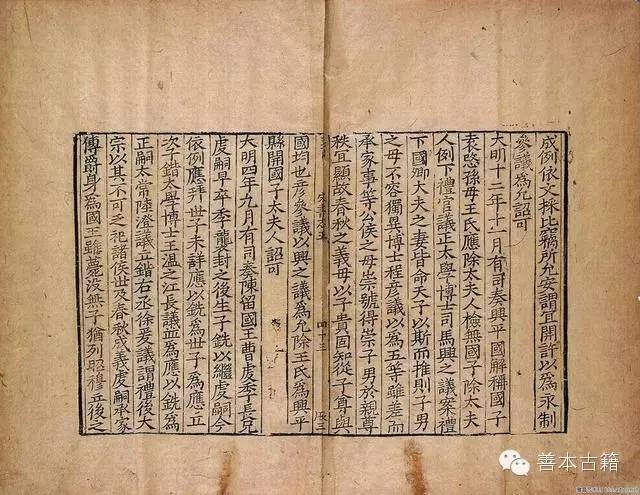 成例依文採比竊所允安謂宜開許以爲永制
參議爲允詔可
大明十二年十一月有司奏興平國解稱國子
袁愍孫母王氏應除太夫人檢無國子除太夫
人例下禮官議正太學博士司馬興之議案禮
下國卿大夫之妻皆命夫子以斯而推則子男
之母不容獨異博士程彥議以爲五等雖差而
承家事等公侯之母崇號得崇子男於親尊
秩宜顯故春秋之義母以子貴固知從子尊與
四十三
國均也彥參議以興之議爲允除王氏爲興平
縣開國子太夫人詔可
大明四年九月有司奏陳留國王曹虔季長兄
虔嗣早卒季龔封之後生子銑以繼虔嗣今
依例應拜世子未詳應以銑爲世子爲應立
次子鍇太學博士王温之江長議並爲應以銑爲
正嗣太常陸澄議立鍇右丞徐爰議謂禮後大
宗以其不可乏祀諸侯世及春秋成義虔嗣承家
傳爵身爲國王雖薨沒無子猶列昭穆立後之
善本古籍